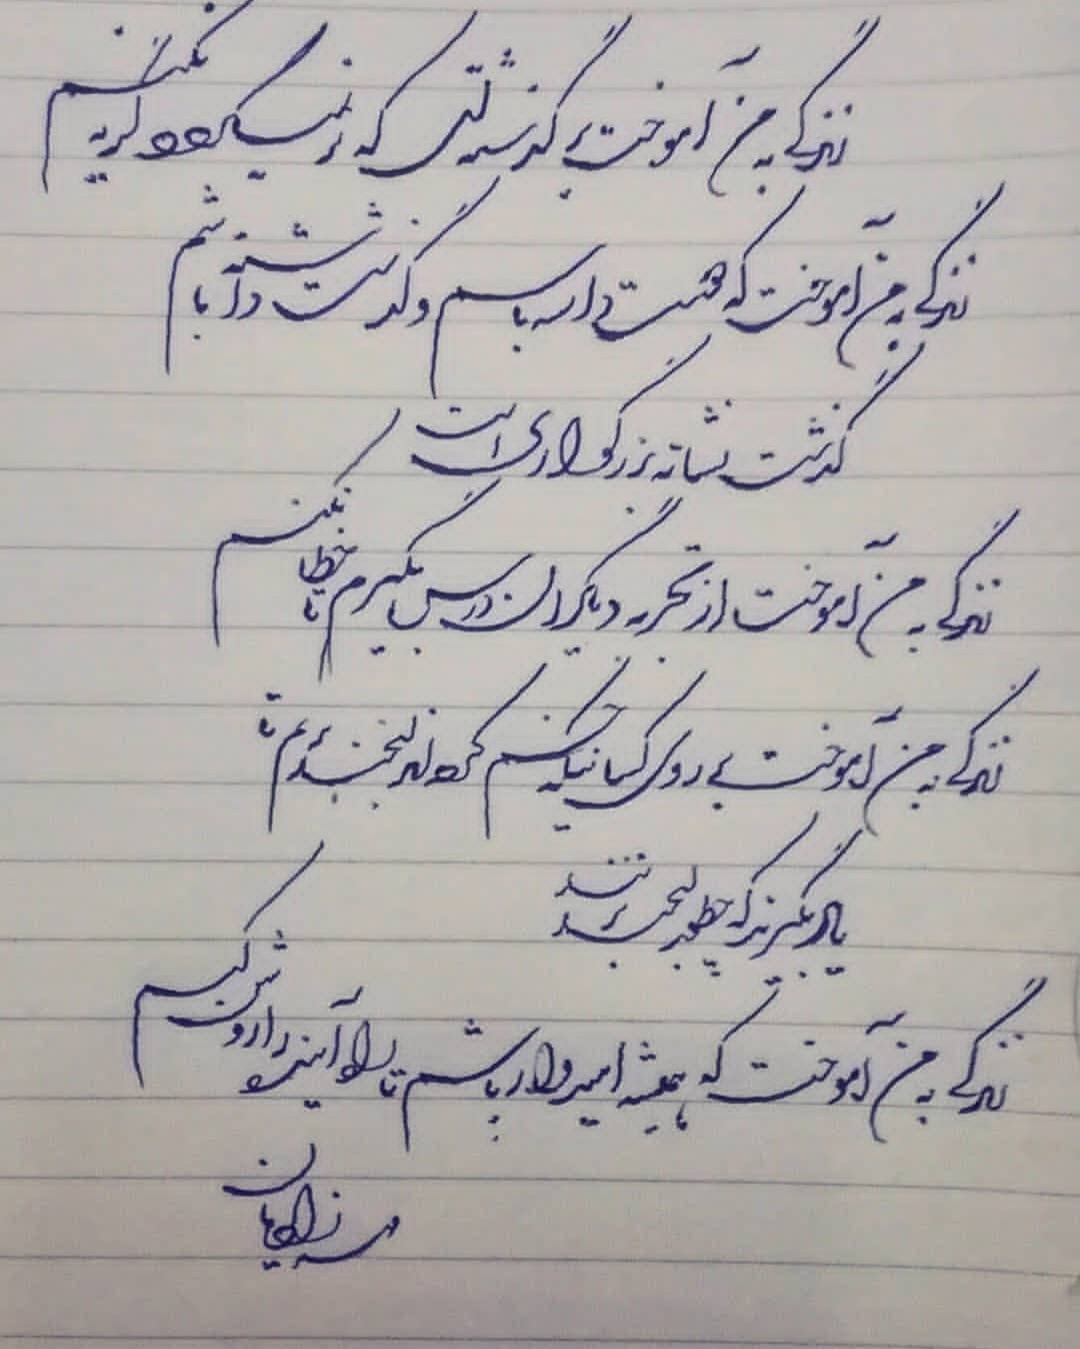 زندگی به من آموخت بر گذشته ای که بر نمیگردد گریه نکنم
زندگی به من آموخت که همت داشته باشم و گذشت داشته باشم
گذشت نشانه بزرگواری است
زندگی به من آموخت از تجربه دیگران درس بگیرم تا خطا نکنم
زندگی به من آموخت به روی کسانیکه خم کرده اند لبخند بزنم تا
یاد بگیرند که چطور لبخند بزنند
زندگی به من آموخت که همیشه امیدوار باشم تا راه آینده را روشن کنم